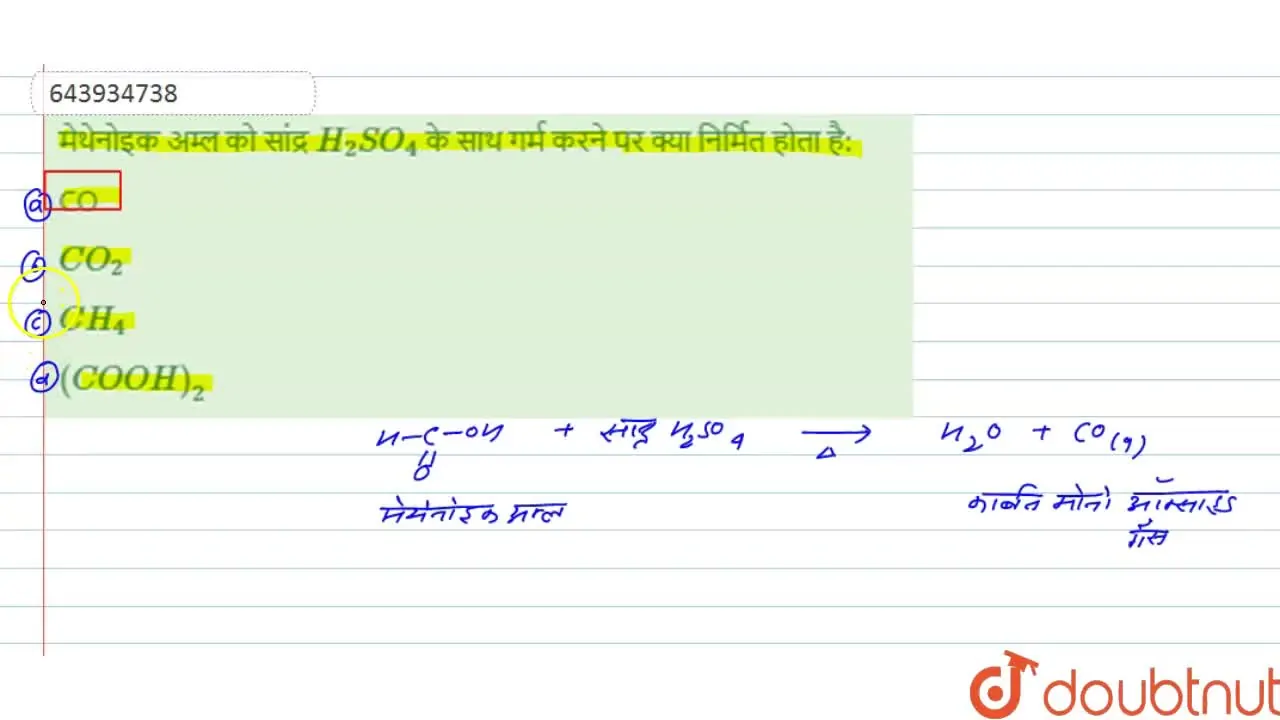 643934738
मेथेनोइक अम्ल को सांद्र H₂SO₄ के साथ गर्म करने पर क्या निर्मित होता है:
(a) CO
(b) CO₂
(c) CH₄
(d) (COOH)₂
H-C-OH + सांद्र H₂SO₄ ⟶ H₂O + CO(g)
||
Δ
O
मेथेनोइक अम्ल
कार्बन मोनो ऑक्साइड
गैस
doubtnut